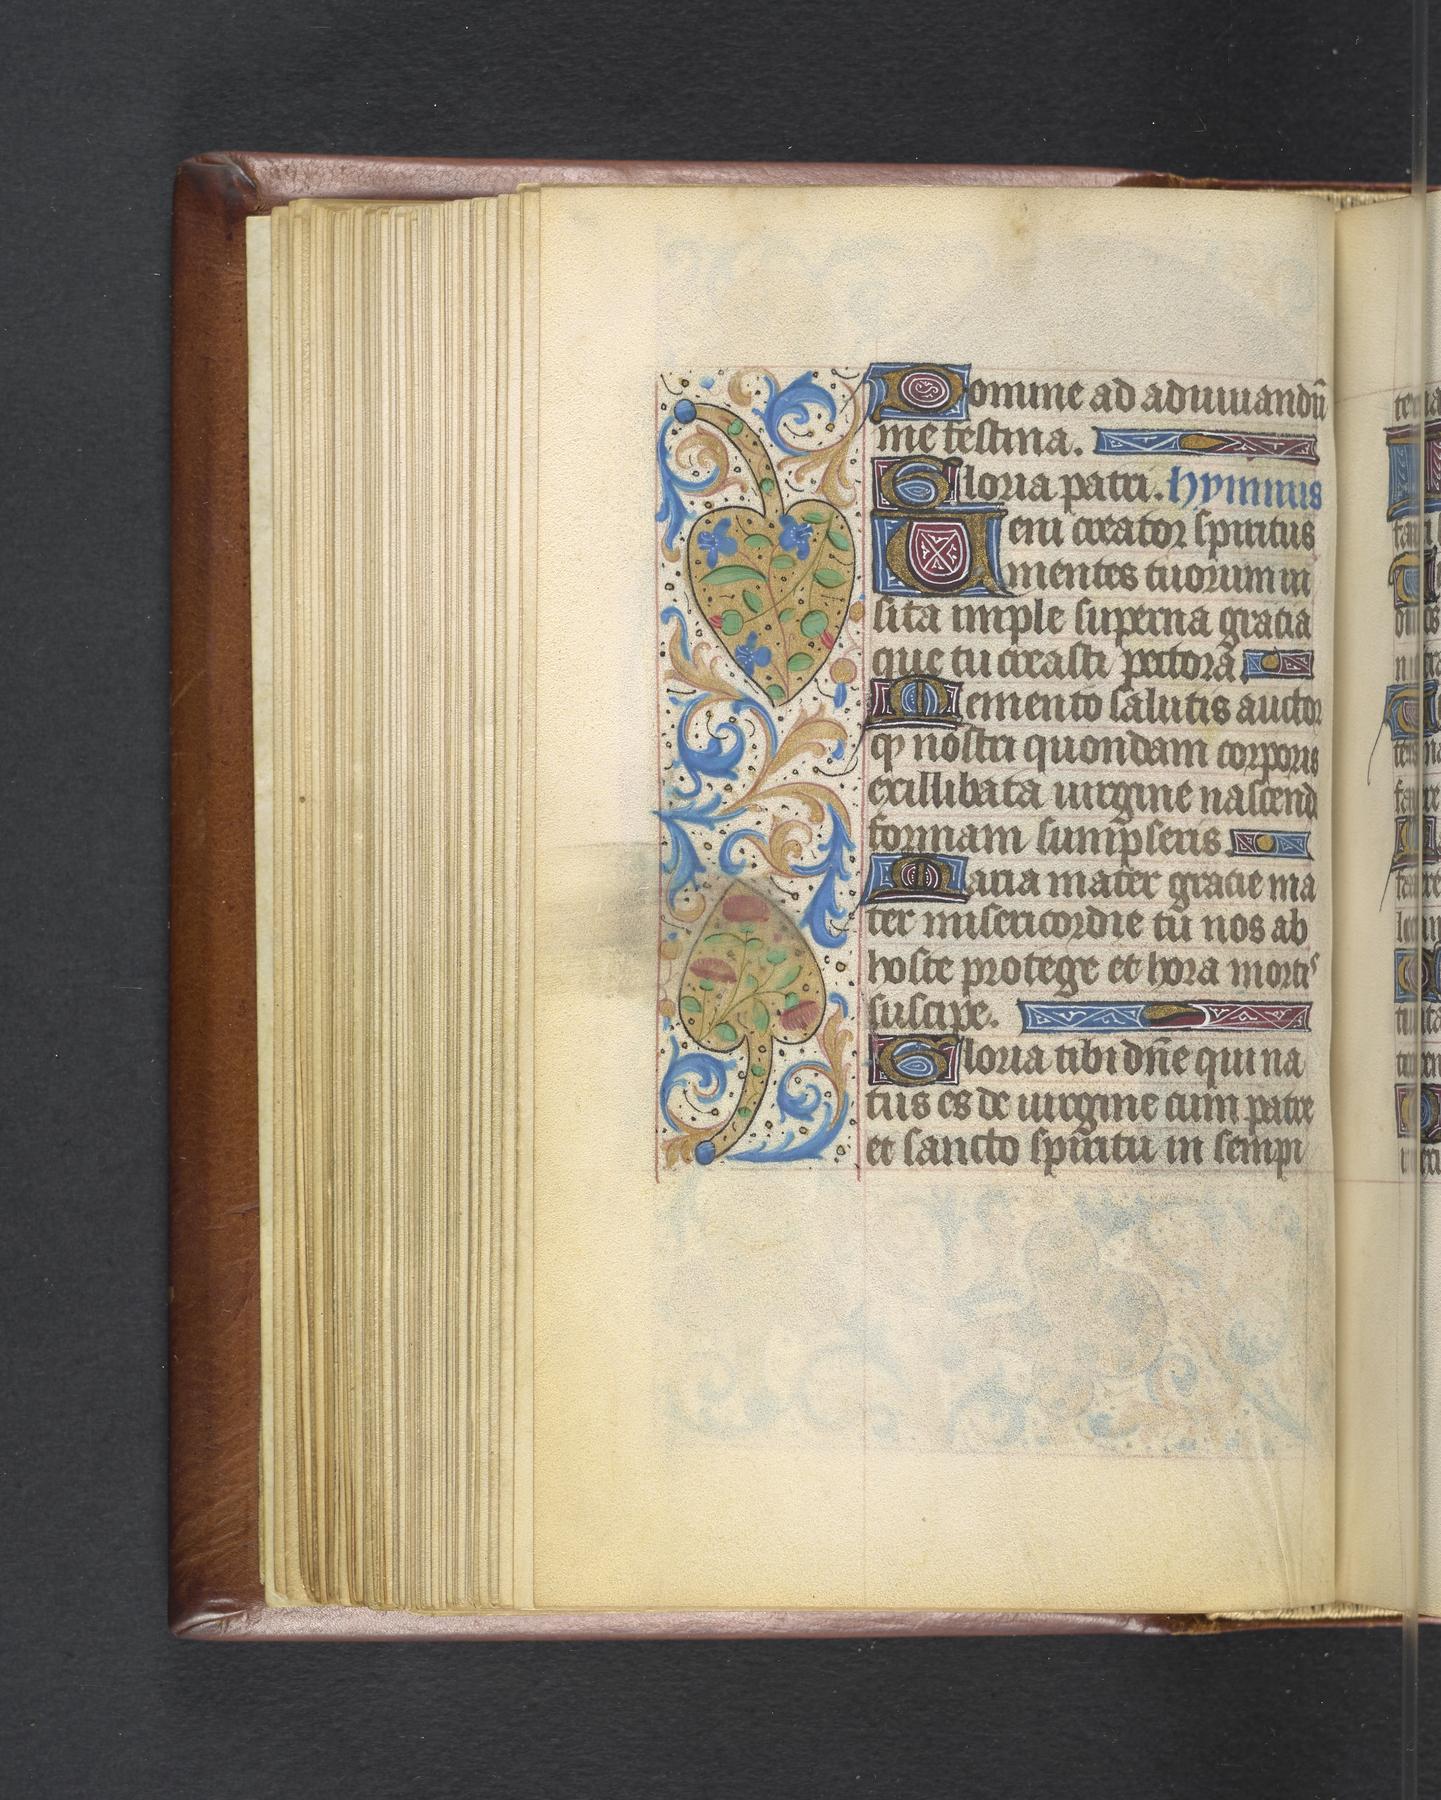 Domine ad adiuuandū
me festina.
Gloria patri. Hymnus
Ueni creator spiritus
mentes tuorum ui
sita imple superna gracia
que tu creasti pectora
Memento salutis auctor
qꝫ nostri quondam corporis
ex illibata uirgine nascend
formam sumpseris.
Maria mater gracie ma
ter misericordie tu nos ab
hoste protege et hora mortis
suscipe.
Gloria tibi dñe qui na
tus es de uirgine cum patre
et sancto spiritu in sempi